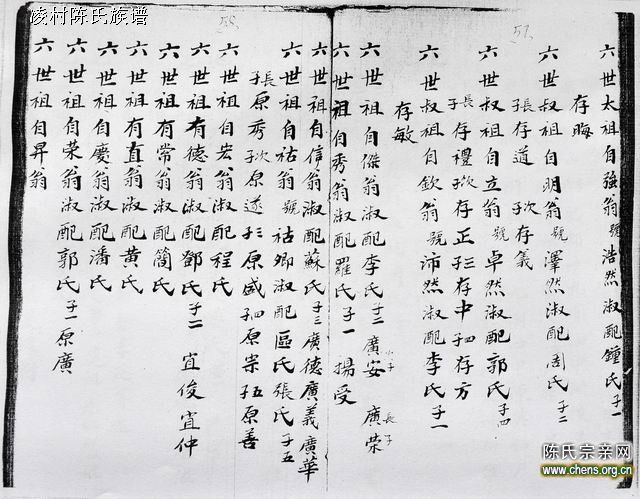 凌村陈氏族谱
57
六世太祖自強翁號浩然淑配鍾氏子一
存晦
六世叔祖自明翁號澤然淑配周氏子二
長子存道 次子存義
六世叔祖自立翁號卓然淑配郭氏子四
長子存禮次子存正三子存中四子存方
六世叔祖自欽翁號沛然淑配李氏子一
存敏
六世祖自傑翁淑配李氏子二廣安 廣荣
小子 長子
六世祖自秀翁淑配羅氏子一 揚受
58
六世祖自信翁淑配蘇氏子三廣德廣義廣華
六世祖自祜翁號祜卿淑配區氏張氏子五
長子原秀次子原遂三子原盛四子原崇五子原善
六世祖自宏翁淑配程氏
六世祖有德翁淑配鄧氏子二 宜俊宜仲
六世祖有常翁淑配簡氏
六世祖有直翁淑配黄氏
六世祖自慶翁淑配潘氏
六世祖自荣翁淑配郭氏子一原廣
六世祖自昇翁
陈氏宗亲网
www.chens.org.cn